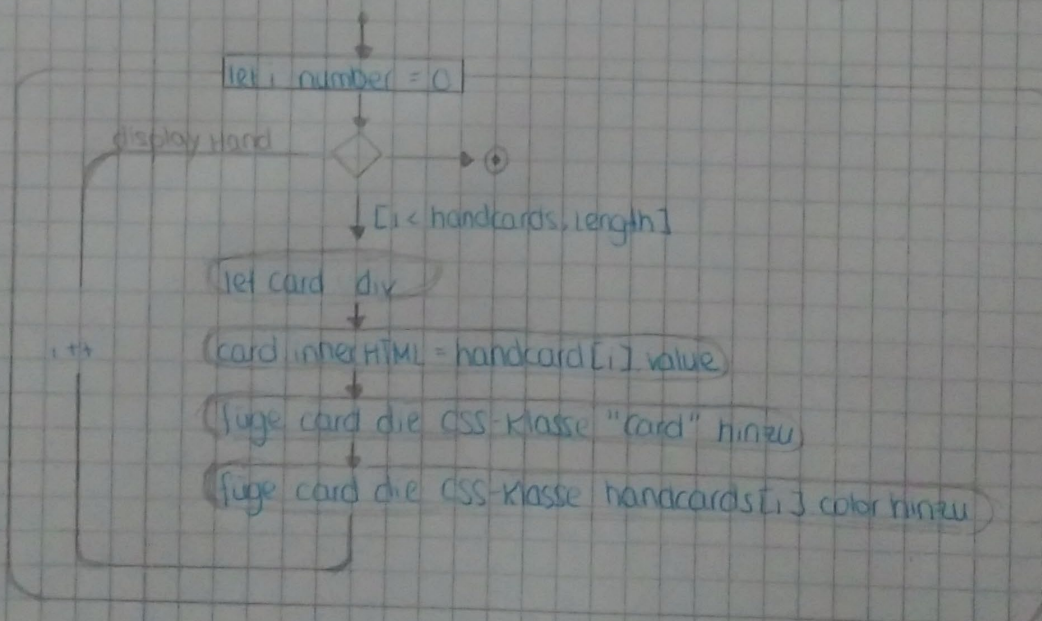 let i number = 0
displayHand
[i < handcards.length]
let card div
card innerHTML = handcard[i].value
i++
füge card die css-Klasse "card" hinzu
füge card die css-Klasse handcards[i] color hinzu